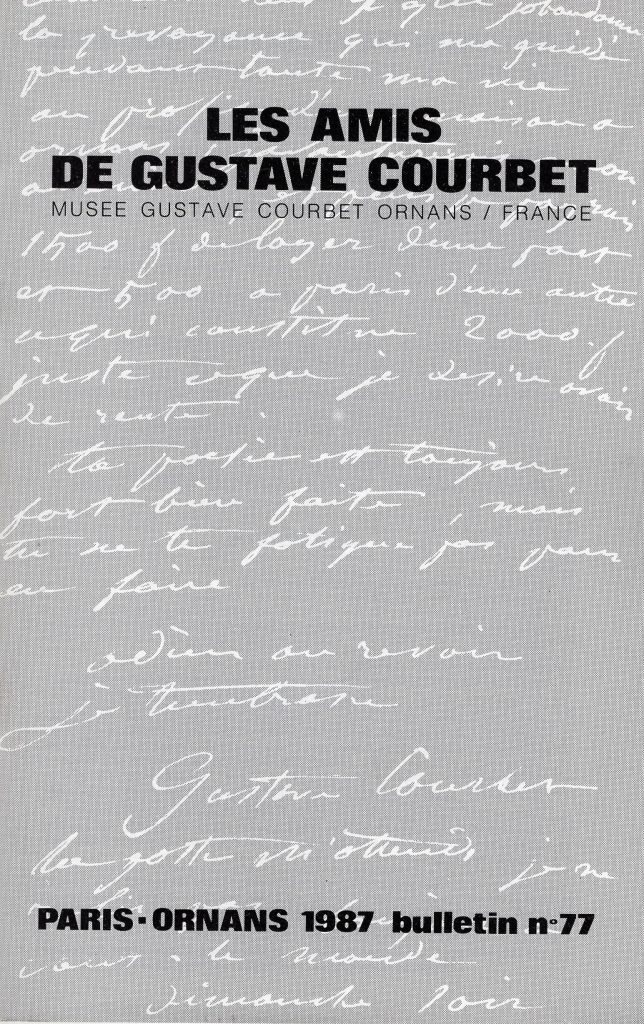 la prevoyance qui ma guidé
pendant toute ma vie
LES AMIS
DE GUSTAVE COURBET
MUSEE GUSTAVE COURBET ORNANS / FRANCE
1500 f de loyer d'une part
et 500 a paris d'une autre
cequi constitue 2000 f
juste ceque je desire avoir
de rente.
Ta poesie est toujours
fort bien faite, mais
tu ne te fatigue pas pour
en faire
adieu au revoir
je t'embrasse
Gustave Courbet
la goutte m'attend, je ne
PARIS - ORNANS 1987 bulletin n°77
tout le monde
Dimanche soir